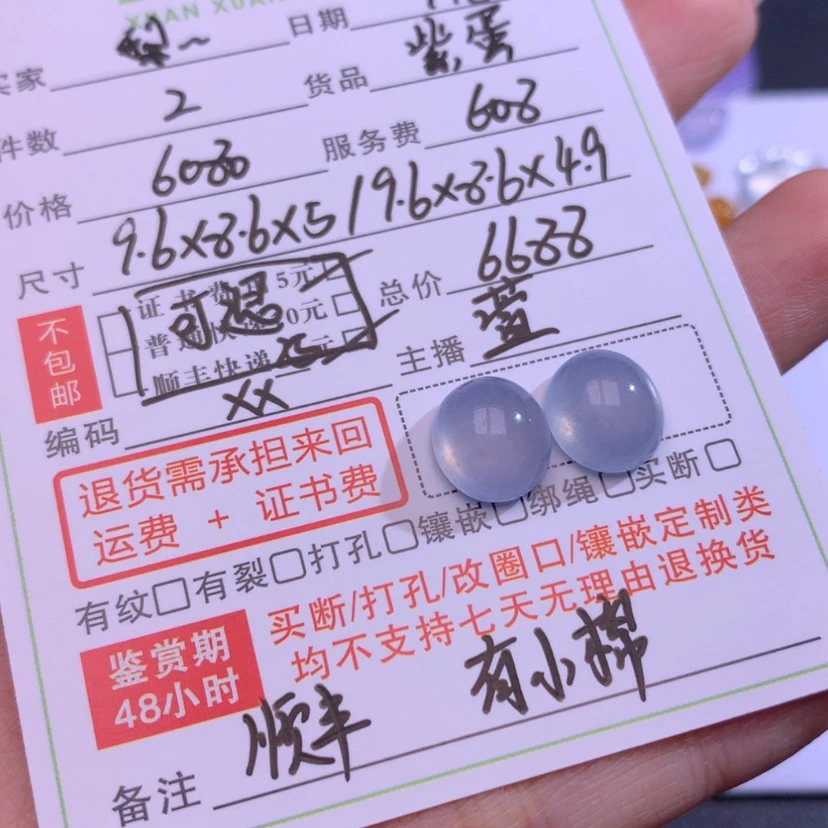 XUAN XUAN
买家 梨~ 日期
件数 2 货品 紫蛋
价格 6080 服务费 608
尺寸 9.6×8.6×5/9.6×8.6×4.9
不包邮
证书费 5元
普通快递 0元
顺丰快递 25元
可想
总价 6688
编码 XX 主播 萱
退货需承担来回
运费 + 证书费
有纹□有裂□打孔□镶嵌□绑绳□买断□
鉴赏期
48小时
买断/打孔/改圈口/镶嵌定制类
均不支持七天无理由退换货
备注 顺丰 有小棉